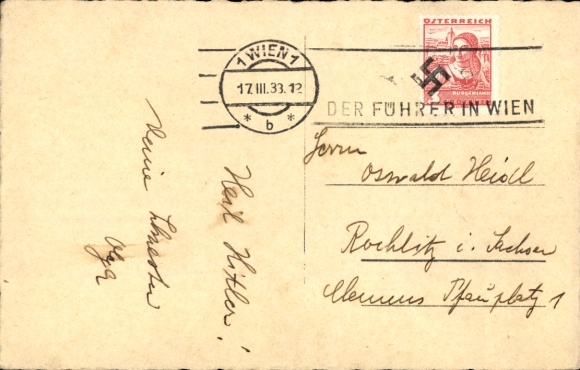 ÖSTERREICH
BURGENLAND
1 WIEN 1
17.III.38.12
* b *
DER FÜHRER IN WIEN
Herrn
Oswald Heidl
Rochlitz i. Sachsen
Clemens Pfauplatz 1
Heil Hitler!
Deine Schwester
Olga